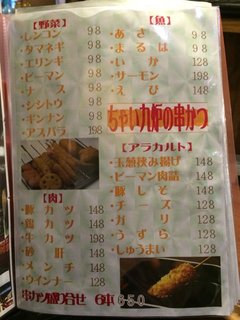 【野菜】
・レンコン 98
・タマネギ 98
・エリンギ 98
・ピーマン 98
・ナス 98
・シシトウ 98
・ギンナン 98
・アスパラ 198
【肉】
・豚カツ 148
・鶏カツ 148
・牛カツ 198
・砂肝 148
・メンチ 148
・ウインナー 128
串カツ盛り合せ 6本 650
【魚】
・あさり 98
・まるは 98
・いか 128
・サーモン 148
・えび 148
ちゃい九炉の串かつ
【アラカルト】
・玉葱挟み揚げ 148
・ピーマン肉詰 148
・豚しそ 148
・チーズ 128
・ガリ 128
・うずら 128
・しゅうまい 128